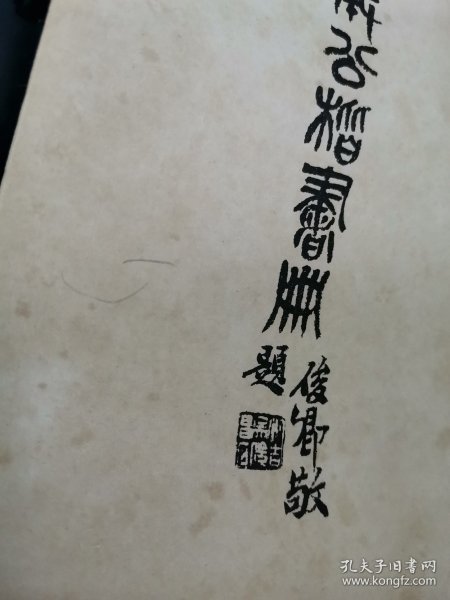 公楷書冊
俊卿敬
題
孔夫子旧书网
www.kongfz.com